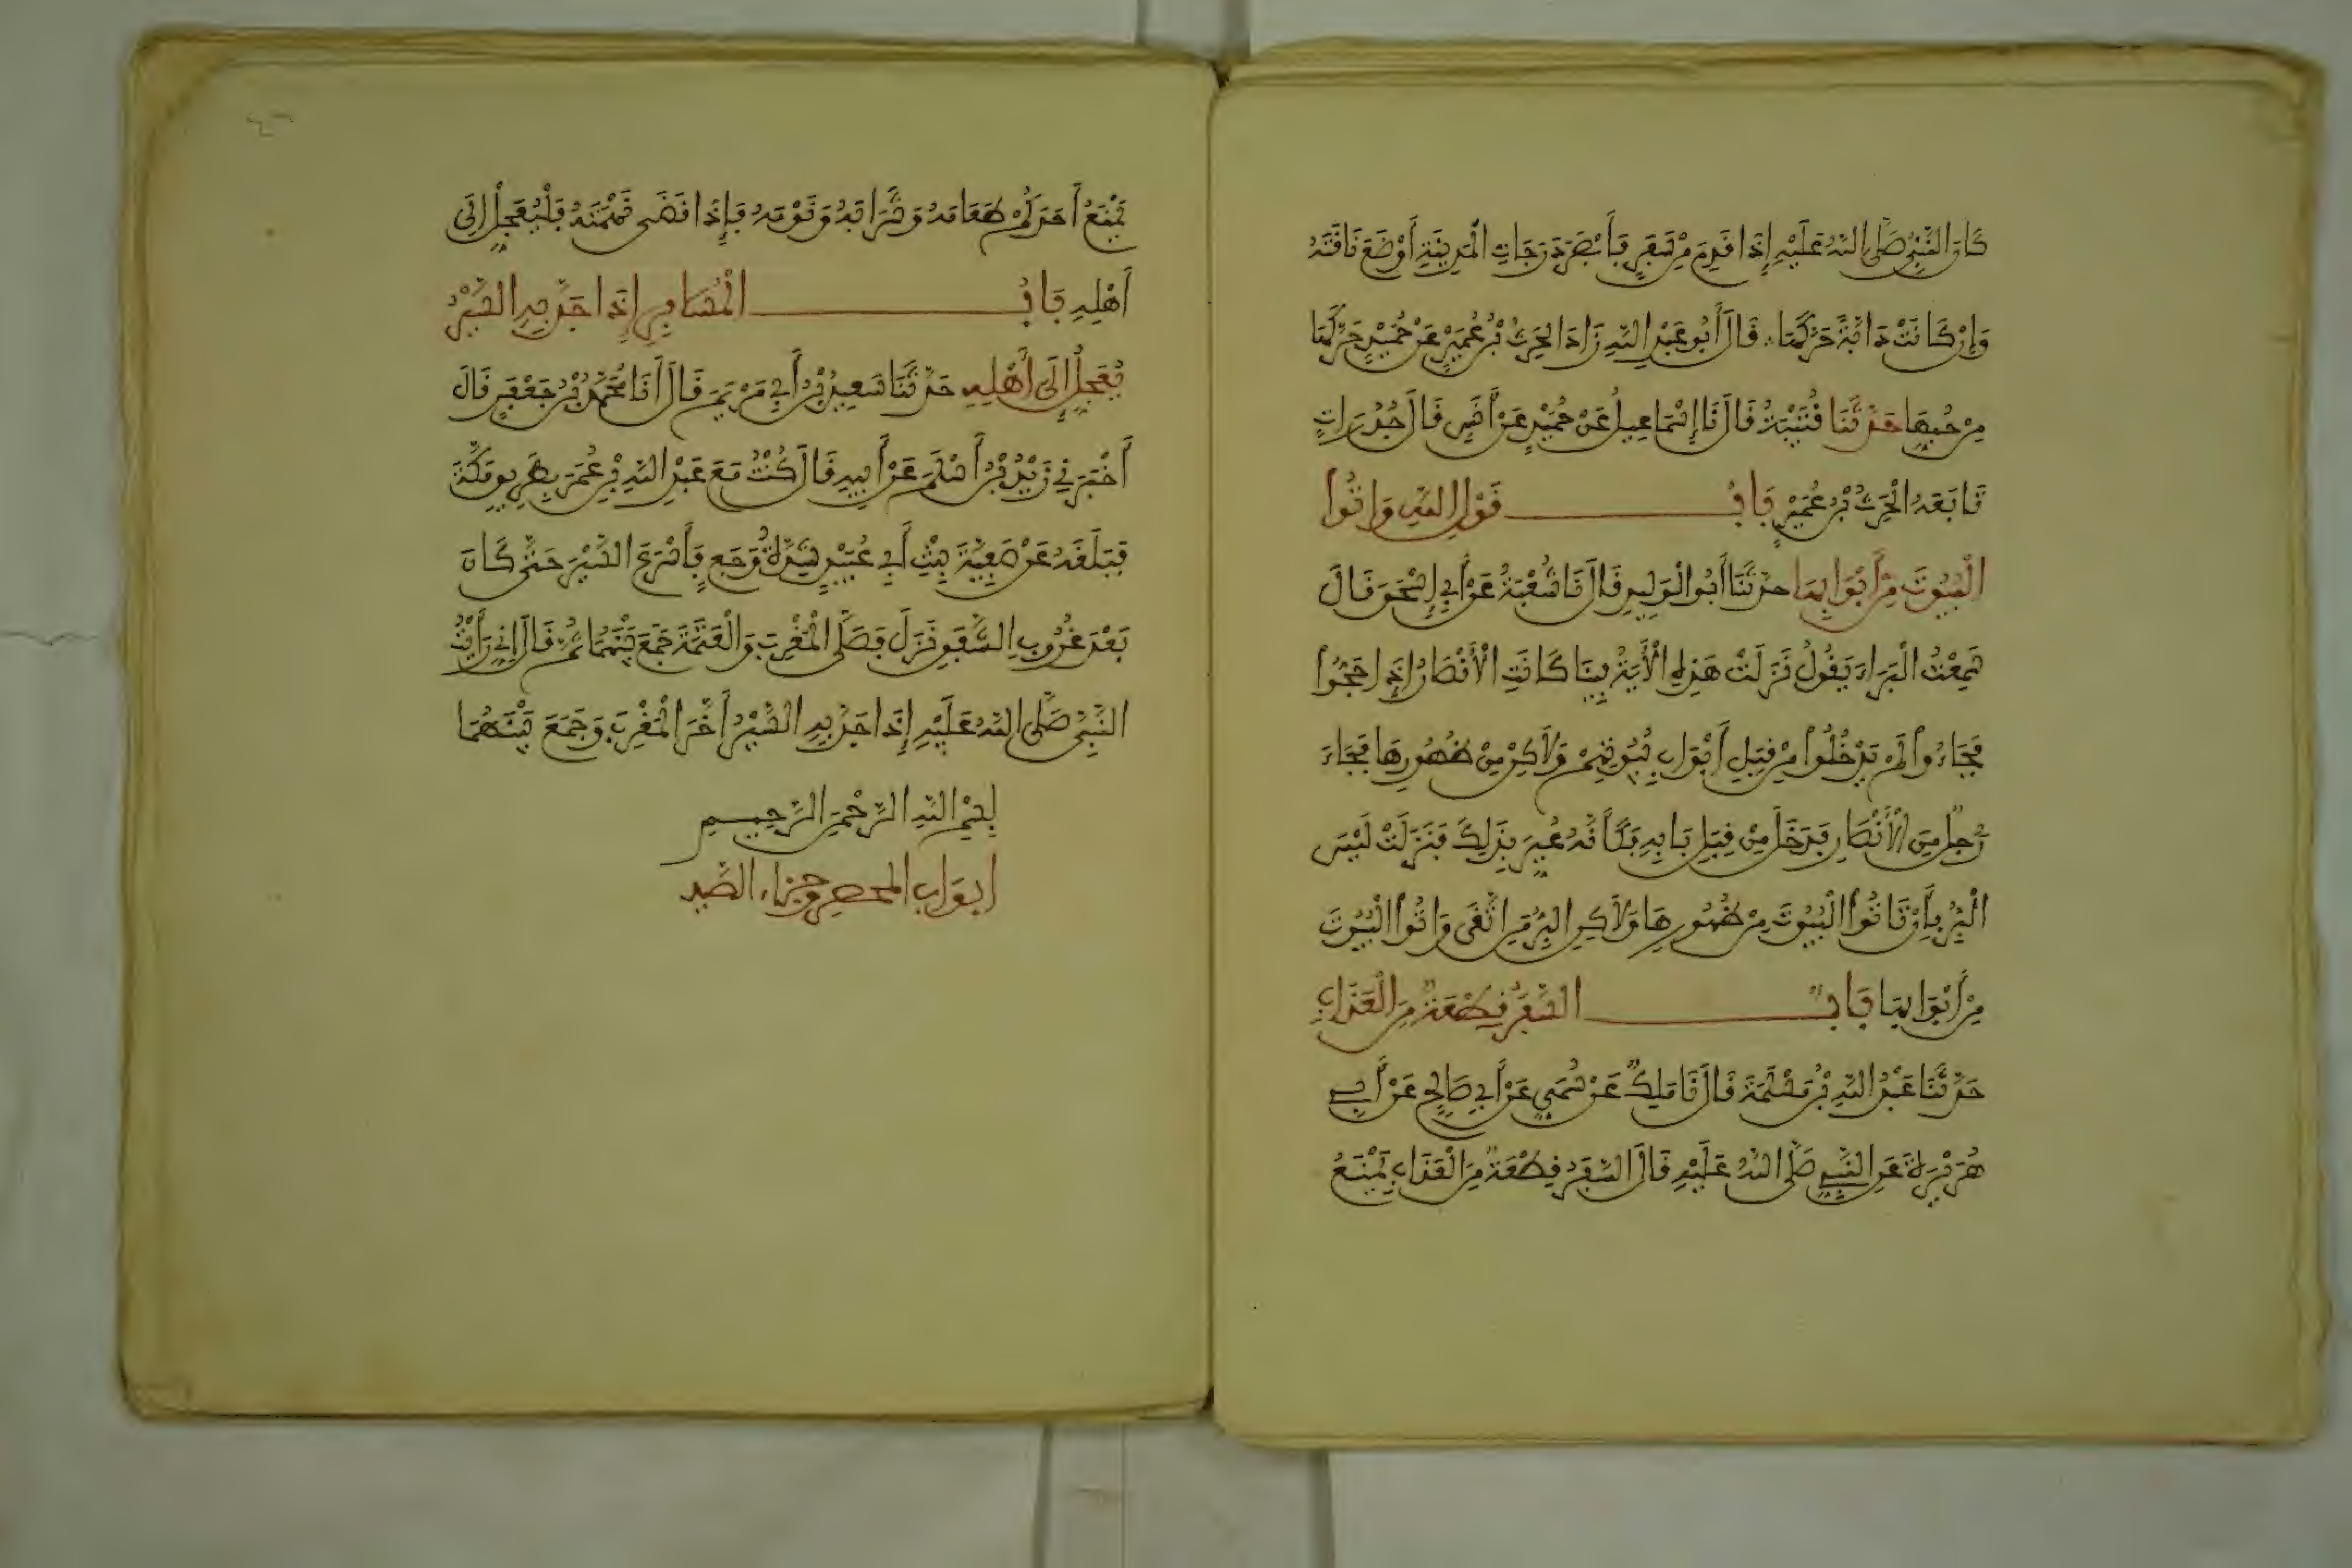 كَانَ النَّبِيُّ صَلَّى اللهُ عَلَيْهِ إِذَا قَدِمَ مِنْ سَفَرٍ فَأَبْصَرَ دَرَجَاتِ الْمَدِينَةِ أَوْضَعَ نَاقَتَهُ
وَإِنْ كَانَتْ دَابَّةً حَرَّكَهَا قَالَ أَبُو عَبْدِ اللهِ زَادَ الْحَرِثُ بْنُ عُمَيْرٍ عَنْ حُمَيْدٍ حَرَّكَهَا
مِنْ حُبِّهَا حَدَّثَنَا قُتَيْبَةُ قَالَ نَا إِسْمَاعِيلُ عَنْ حُمَيْدٍ عَنْ أَنَسٍ قَالَ جُدُرَاتِ
تَابَعَهُ الْحَرِثُ بْنُ عُمَيْرٍ بَابُ قَوْلِ اللهِ وَاتُوا
الْبُيُوتَ مِنْ أَبْوَابِهَا حَدَّثَنَا أَبُو الْوَلِيدِ قَالَ نَا شُعْبَةُ عَنْ أَبِي إِسْحَقَ قَالَ
سَمِعْتُ الْبَرَاءَ يَقُولُ نَزَلَتْ هَذِهِ الْأَيَةُ فِينَا كَانَتِ الْأَنْصَارُ إِذَا حَجُّوا
فَجَاءُوا لَمْ يَدْخُلُوا مِنْ قِبَلِ أَبْوَابِ بُيُوتِهِمْ وَلَاكِنْ مِنْ ظُهُورِهَا فَجَاءَ
رَجُلٌ مِنَ الْأَنْصَارِ فَدَخَلَ مِنْ قِبَلِ بَابِهِ فَكَأَنَّهُ عُيِّرَ بِذَلِكَ فَنَزَلَتْ لَيْسَ
الْبِرُّ بِأَنْ تَاتُوا الْبُيُوتَ مِنْ ظُهُورِهَا وَلَاكِنِ الْبِرُّ مَنِ اتَّقَى وَاتُوا الْبُيُوتَ
مِنْ أَبْوَابِهَا بَابٌ السَّفَرُ قِطْعَةٌ مِنَ الْعَذَابِ
حَدَّثَنَا عَبْدُ اللهِ بْنُ مَسْلَمَةَ قَالَ نَا مَلِكٌ عَنْ سُمَيٍّ عَنْ أَبِي صَالِحٍ عَنْ أَبِي
هُرَيْرَةَ عَنِ النَّبِيِّ صَلَّى اللهُ عَلَيْهِ قَالَ السَّفَرُ قِطْعَةٌ مِنَ الْعَذَابِ يَمْنَعُ
يَمْنَعُ أَحَدَكُمْ طَعَامَهُ وَشَرَابَهُ وَنَوْمَهُ فَإِذَا قَضَى نَهْمَتَهُ فَلْيُعَجِّلْ إِلَى
أَهْلِهِ بَابُ الْمُسَافِرِ إِذَا جَدَّ بِهِ السَّيْرُ
يُعَجِّلُ إِلَى أَهْلِهِ حَدَّثَنَا سَعِيدُ بْنُ أَبِي مَرْيَمَ قَالَ أَنَا مُحَمَّدُ بْنُ جَعْفَرٍ قَالَ
أَخْبَرَنِي زَيْدُ بْنُ أَسْلَمَ عَنْ أَبِيهِ قَالَ كُنْتُ مَعَ عَبْدِ اللهِ بْنِ عُمَرَ بِطَرِيقِ مَكَّةَ
فَبَلَغَهُ عَنْ صَفِيَّةَ بِنْتِ أَبِي عُبَيْدٍ شِدَّةُ وَجَعٍ فَأَسْرَعَ السَّيْرَ حَتَّى كَانَ
بَعْدَ غُرُوبِ الشَّفَقِ نَزَلَ فَصَلَّى الْمَغْرِبَ وَالْعَتَمَةَ جَمَعَ بَيْنَهُمَا ثُمَّ قَالَ إِنِّي رَأَيْتُ
النَّبِيَّ صَلَّى اللهُ عَلَيْهِ إِذَا جَدَّ بِهِ السَّيْرُ أَخَّرَ الْمَغْرِبَ وَجَمَعَ بَيْنَهُمَا
بِسْمِ اللهِ الرَّحْمَنِ الرَّحِيمِ
ابواب المحصر وجزاء الصيد